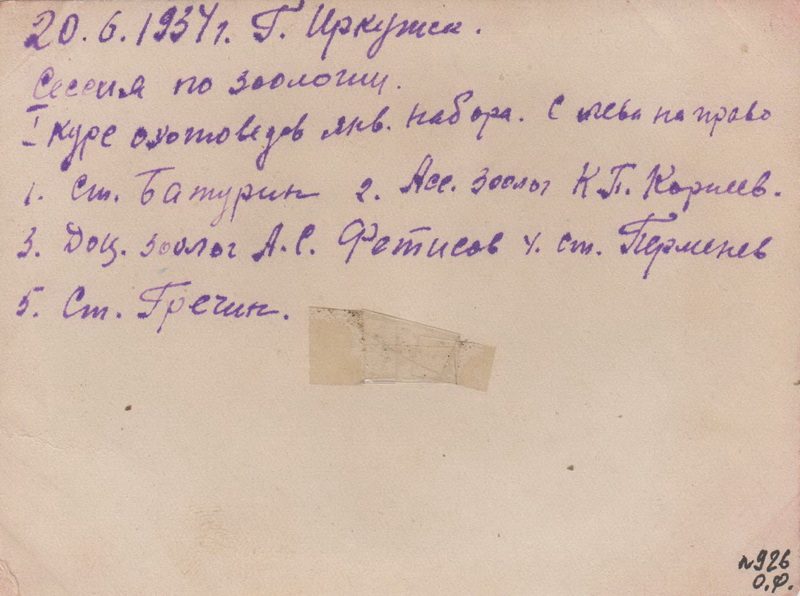 20.6.1934г. Г. Иркутск.
Сессия по зоологии.
I курс охотоведов янв. набора. С лева на право
1. Ст. Батурин 2. Асс. зоолог К.П. Корнеев.
3. Доц. зоолог А.С. Фетисов 4. ст. Перменев
5. Ст. Гречин.
№926
О.Ф.